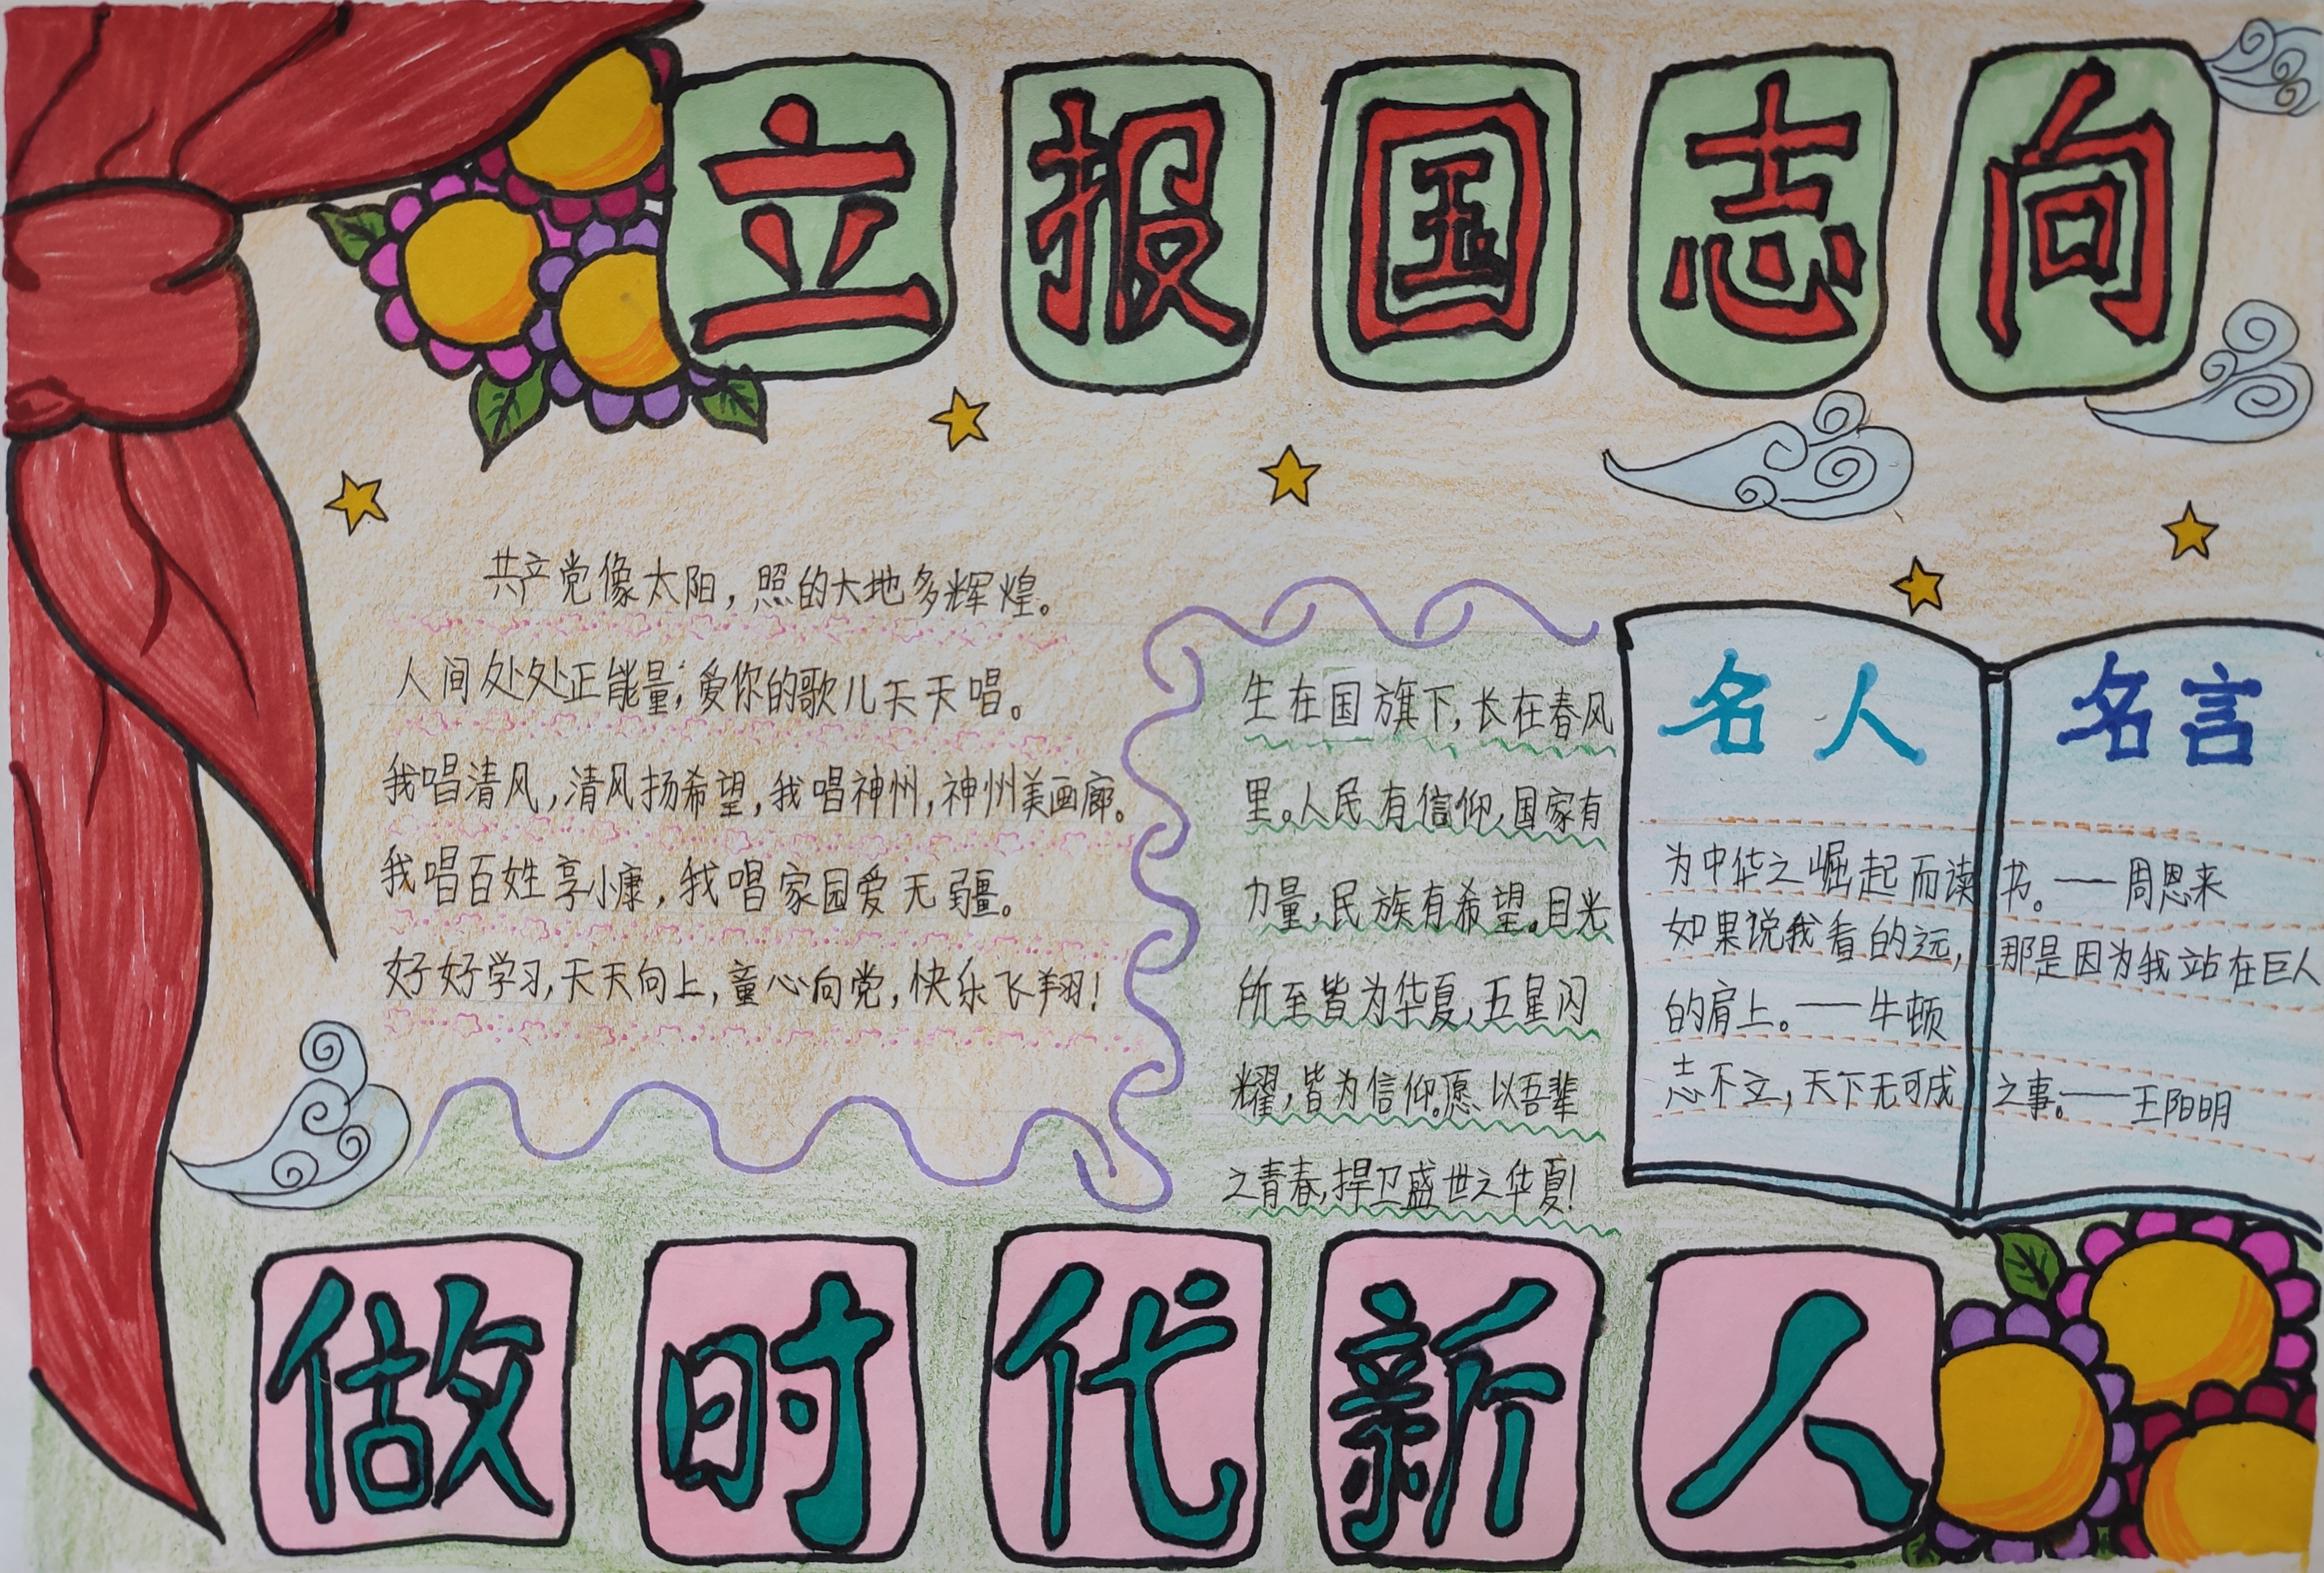 立报国志向
共产党像太阳，照的大地多辉煌。
人间处处正能量，爱你的歌儿天天唱。
我唱清风，清风扬希望，我唱神州，神州美画廊。
我唱百姓享小康，我唱家园爱无疆。
好好学习，天天向上，童心向党，快乐飞翔！
生在国旗下，长在春风
里。人民有信仰，国家有
力量，民族有希望。目光
所至皆为华夏，五星闪
耀，皆为信仰。愿以吾辈
之青春，捍卫盛世之华夏！
名人名言
为中华之崛起而读书。——周恩来
如果说我看的远，那是因为我站在巨人
的肩上。——牛顿
志不立，天下无可成之事。——王阳明
做时代新人